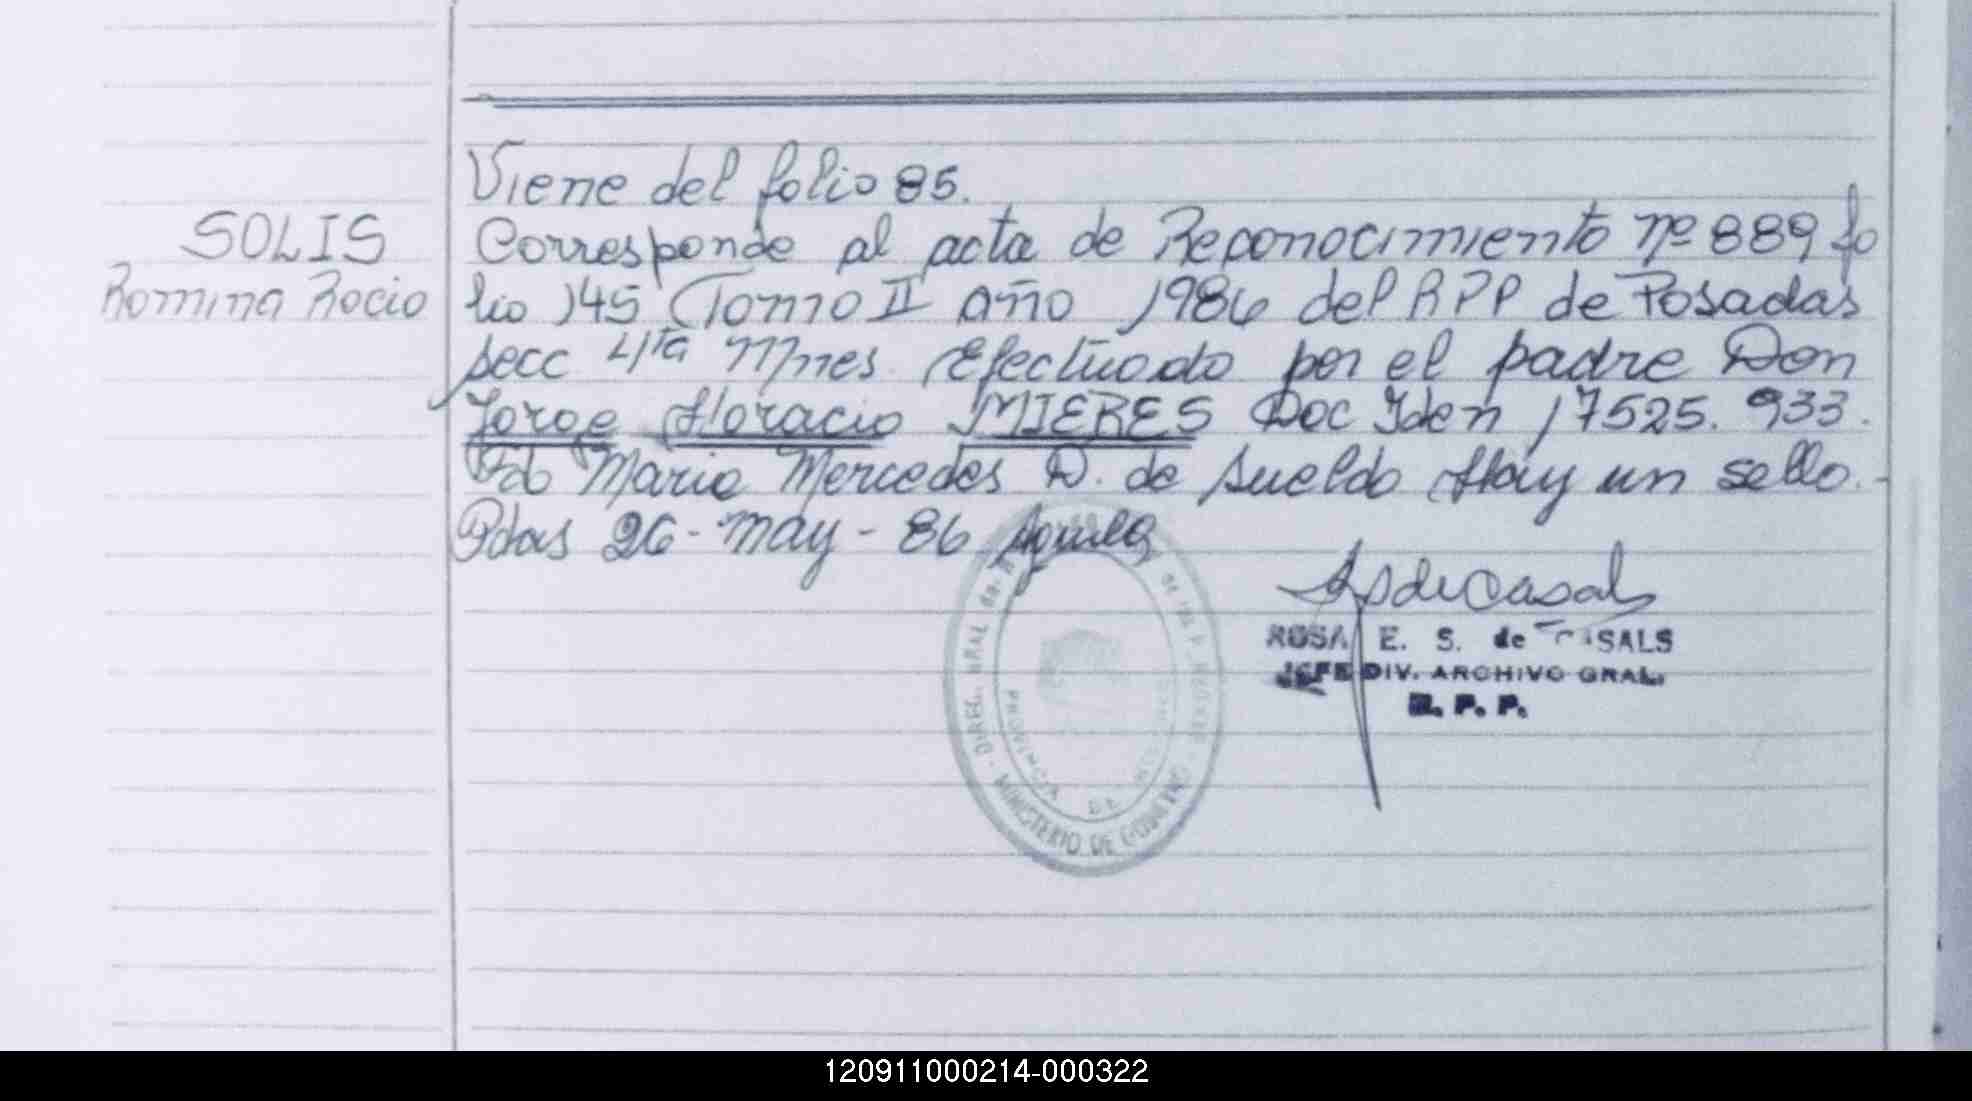 Viene del folio 85.
SOLIS
Romina Rocio
Corresponde al acta de Reconocimiento nº 889 fo
lio 145 Tomo II año 1986 del RPP de Posadas
secc 4ta Mnes. Efectuado por el padre Don
Jorge Horacio MIERES Doc Iden 17525.933.
Fdo Maria Mercedes D. de Sueldo Hay un sello.-
Pdas 26-May-86
ROSA E. S. de CASALS
JEFE DIV. ARCHIVO GRAL.
R. P. P.
PROVINCIA DE
MINISTERIO DE GOBIERNO
120911000214-000322